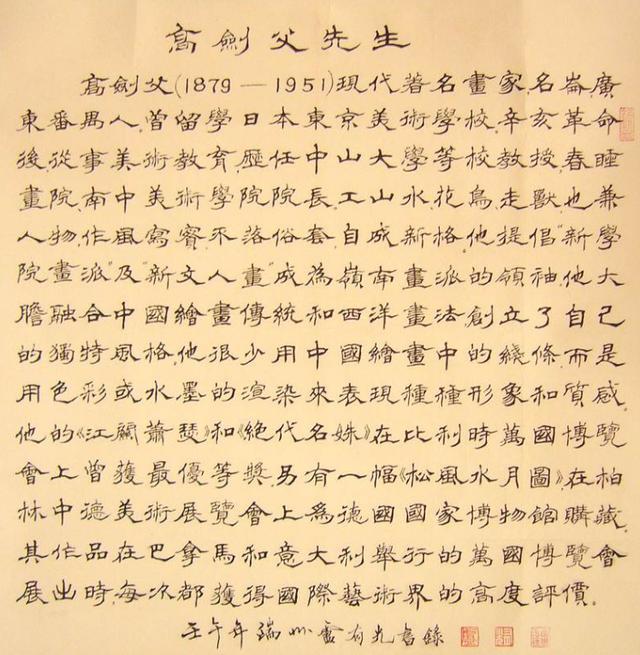 高劍父先生
高劍父(1879—1951)現代著名畫家,名崙,廣
東番禺人,曾留學日本東京美術學校,辛亥革命
後,從事美術教育,歷任中山大學等校教授,春睡
畫院,南中美術學院院長,工山水,花鳥,走獸,也兼
人物,作風寫實,不落俗套,自成新格,他提倡“新學
院畫派”及“新文人畫”成為嶺南畫派的領袖,他大
膽融合中國繪畫傳統和西洋畫法,創立了自己
的獨特風格,他很少用中國繪畫中的綫條,而是
用色彩或水墨的渲染來表現種種形象和質感,
他的《江關蕭瑟》和《絕代名姝》在比利時萬國博覽
會上曾獲最優等獎,另有一幅《松風水月圖》,在柏
林中德美術展覽會上為德國國家博物館購藏,
其作品在巴拿馬和意大利舉行的萬國博覽會
展出時,每次都獲得國際藝術界的高度評價。
壬午年瑞州盧有光書錄